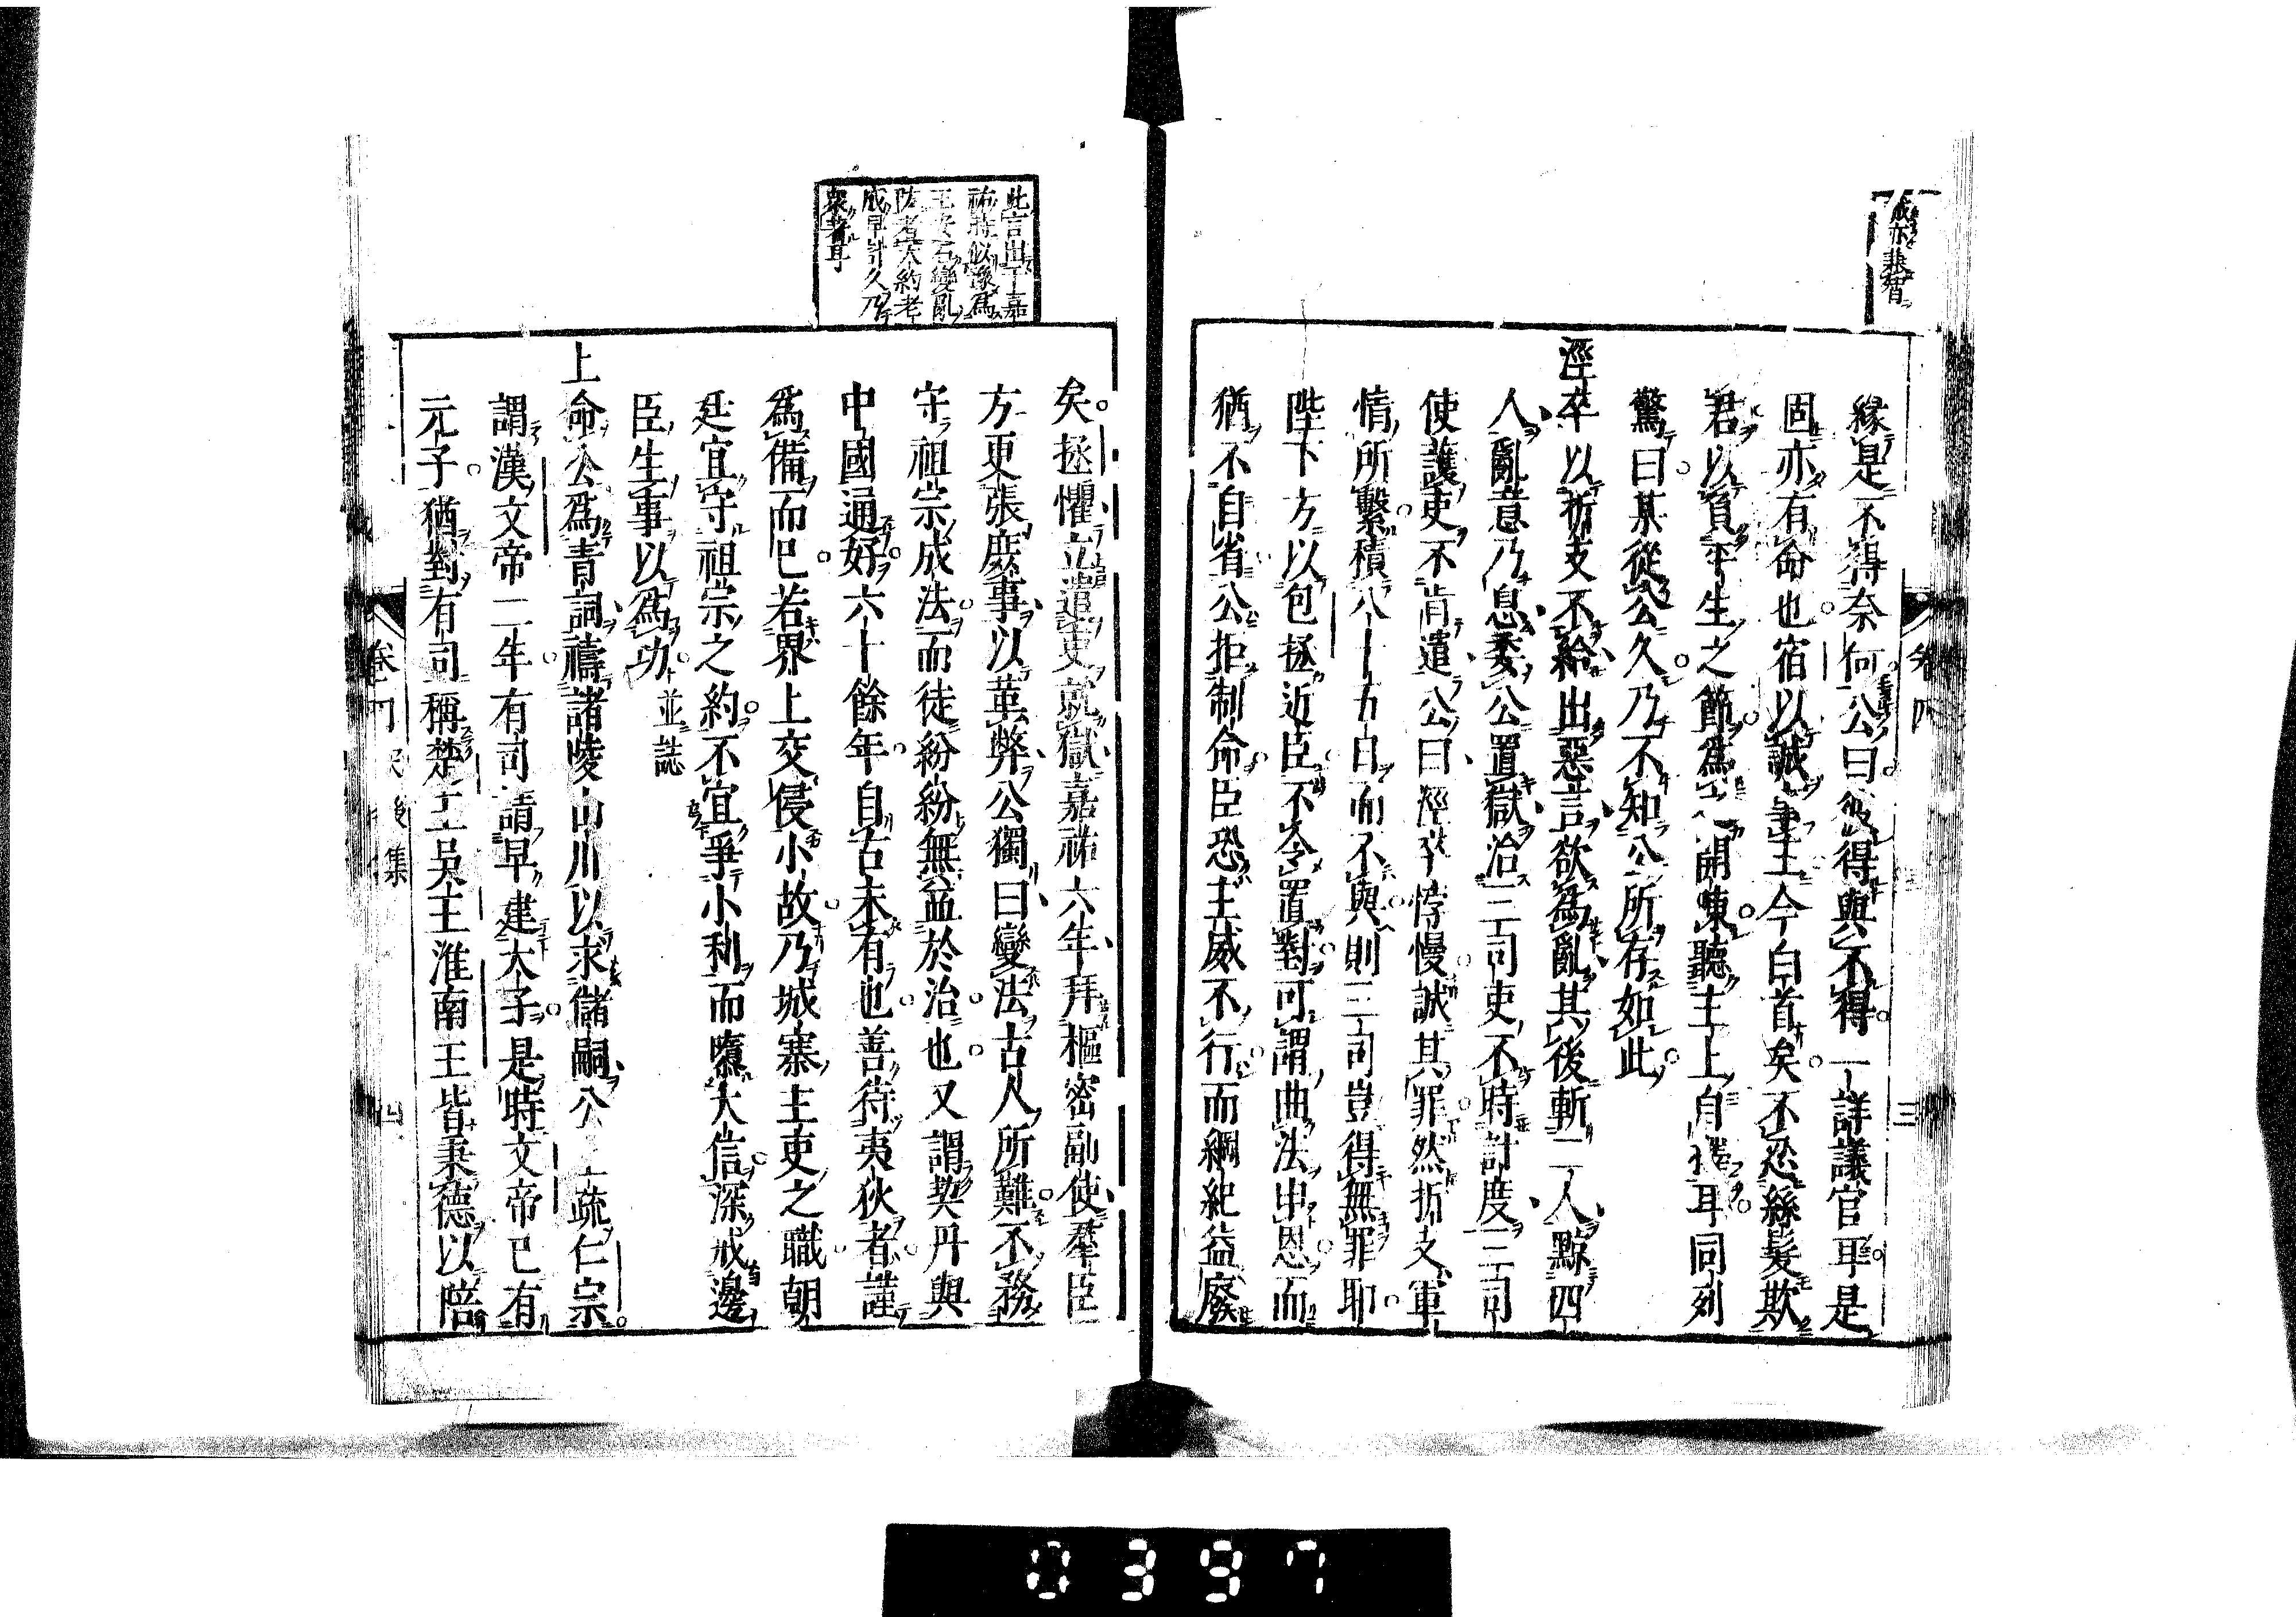 緣是不得奈何公曰彼得與不得一詳議官耳是
固亦有命也宿以誠事主今白首矣不忍絲髮欺
君以負平生之節爲之開陳聽主上自擇耳同列
驚曰某從公久乃不知公所存如此
涇卒以折支不給出惡言欲爲亂其後斬二人黥四
人亂意乃息委公置獄治三司吏不時計度三司
使護吏不肯遣公曰涇卒悖慢誠其罪然折支軍
情所繫積八十五日而不與則三司豈得無罪耶
陛下方以包拯近臣不令置對可謂曲法申恩而
猶不自省公拒制命臣恐主威不行而綱紀益廢
此言出于嘉
祐時似豫爲
王安石變亂
防者大約老
成早計久乃
衆著耳
矣拯懼立遣吏就獄嘉祐六年拜樞密副使羣臣
方更張庶事以革弊公獨曰變法古人所難不務
守祖宗成法而徒紛紛無益於治也又謂契丹與
中國通好六十餘年自古未有也善待夷狄者謹
爲備而已若界上交侵小故乃城寨主吏之職朝
廷宜守祖宗之約不宜爭小利而隳大信深戒邊
臣生事以爲功 並誌
上命公爲青詞禱諸陵山川以求儲嗣公上疏仁宗
謂漢文帝二年有司請早建太子是時文帝已有
元子猶對有司稱楚王吳王淮南王皆秉德以陪
0397